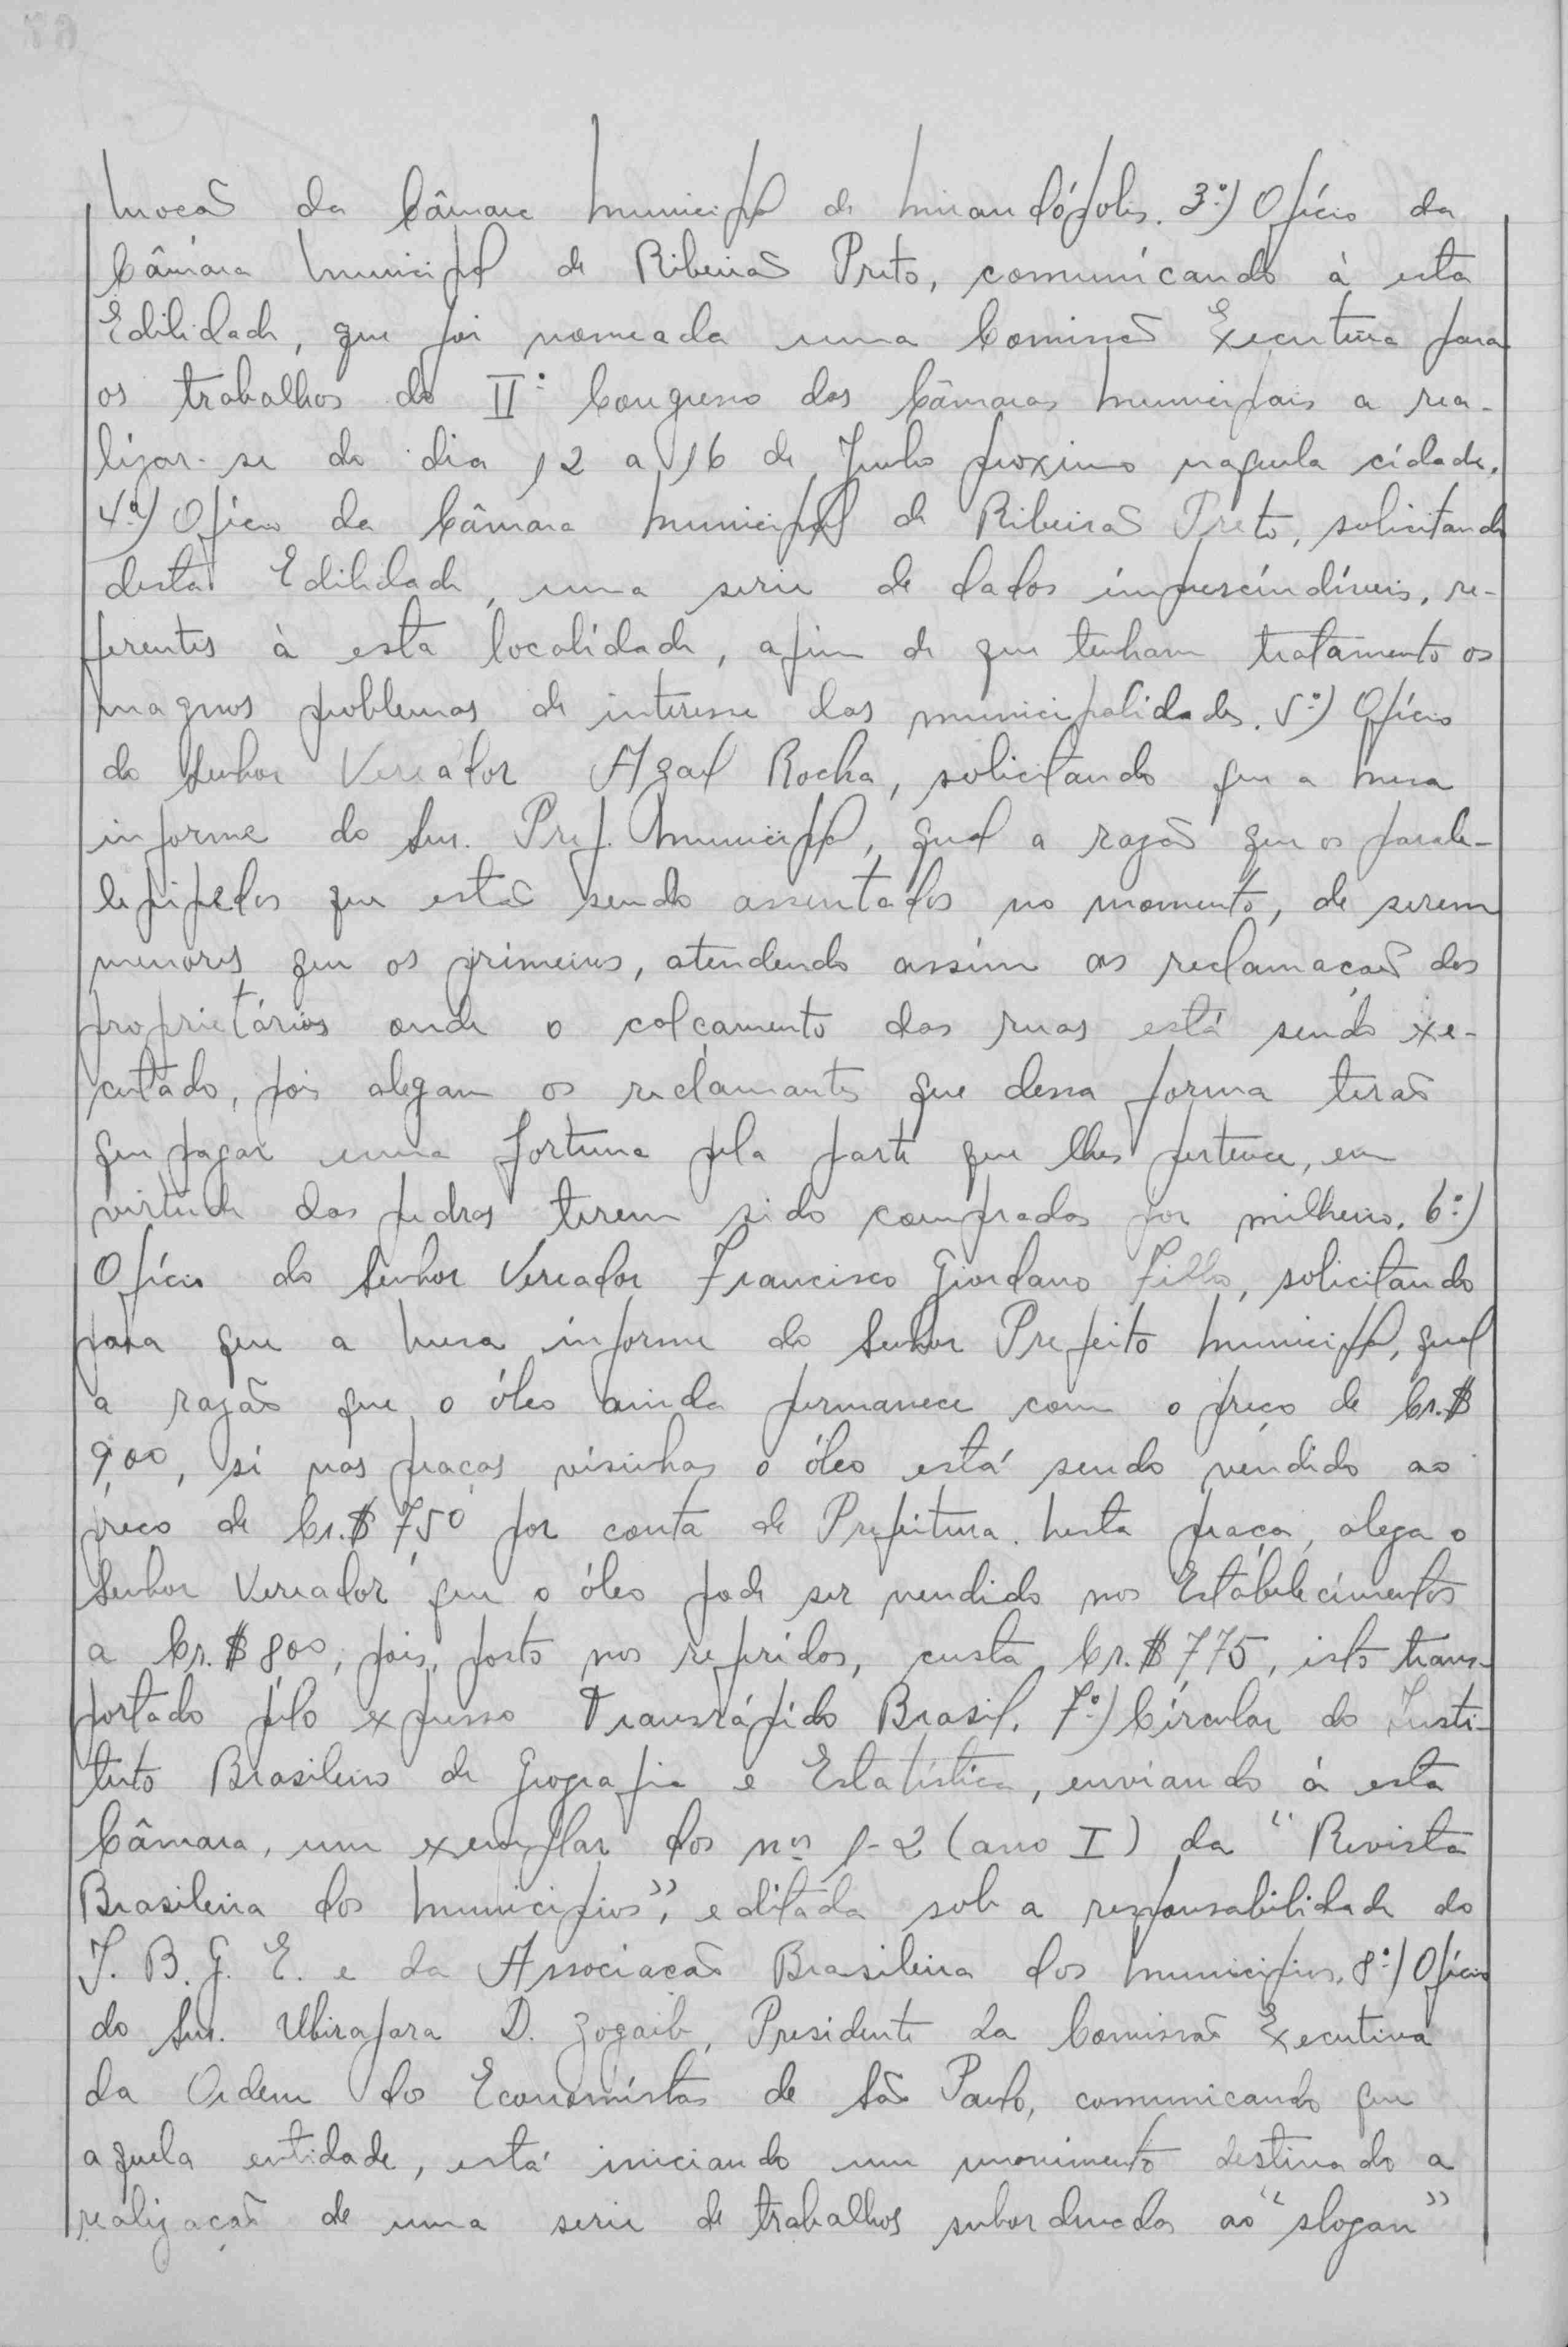 Moção da Câmara Municipal de Mirandópolis. 3º) Ofício da
Câmara Municipal de Ribeirão Preto, comunicando à esta
Edilidade, que foi nomeada uma Comissão Executiva para
os trabalhos do IIº Congresso das Câmaras Municipais a rea-
lizar-se do dia 12 a 16 de Junho proximo naquela cidade.
4º) Ofício da Câmara Municipal de Ribeirão Preto, solicitando
desta Edilidade, uma serie de dados imprescíndíveis, re-
ferentes à esta localidade, afim de que tenham tratamento os
magnos problemas de interesse das municipalidades. 5º) Ofício
do Senhor Vereador Azael Rocha, solicitando que a Mesa
informe do Snr. Pref. Municipal, qual a razão que os parale-
lepípedos que estão sendo assentados no momento, de serem
menores que os primeiros, atendendo assim as reclamações dos
proprietários onde o calçamento das ruas está sendo exe-
cutado, pois alegam os reclamantes que dessa forma terão
que pagar uma fortuna pela parte que lhes pertence, em
virtude das pedras terem sido compradas por milheiro. 6º)
Ofício do Senhor Vereador Francisco Giordano Filho, solicitando
para que a Mesa informe do Senhor Prefeito Municipal, qual
a razão que o óleo ainda permanece com o preço de Cr.$
9,00, si nas praças visinhas o óleo está sendo vendido ao
preço de Cr.$ 7,50 por conta de Prefeitura. Nesta praça, alega o
Senhor Vereador que o óleo pode ser vendido nos Estabelecimentos
a Cr.$ 8,00, pois, posto nos referidos, custa Cr.$ 7,75, isto trans-
portado pelo expresso Transrápido Brasil. 7º) Círcular do Insti-
tuto Brasileiro de Geografia e Estatística, enviando à esta
Câmara, um exemplar dos nos 1-2 (ano I) da "Revista
Brasileira dos Municipios", editada sob a responsabilidade do
I. B. G. E. e da Associação Brasileira dos Municipios. 8º) Ofício
do Snr. Ubirajara D. Zogaib, Presidente da Comissão Executiva
da Ordem dos Economistas de São Paulo, comunicando que
aquela entidade, está iniciando um movimento destinado a
realização de uma serie de trabalhos subordinados ao "slogan"